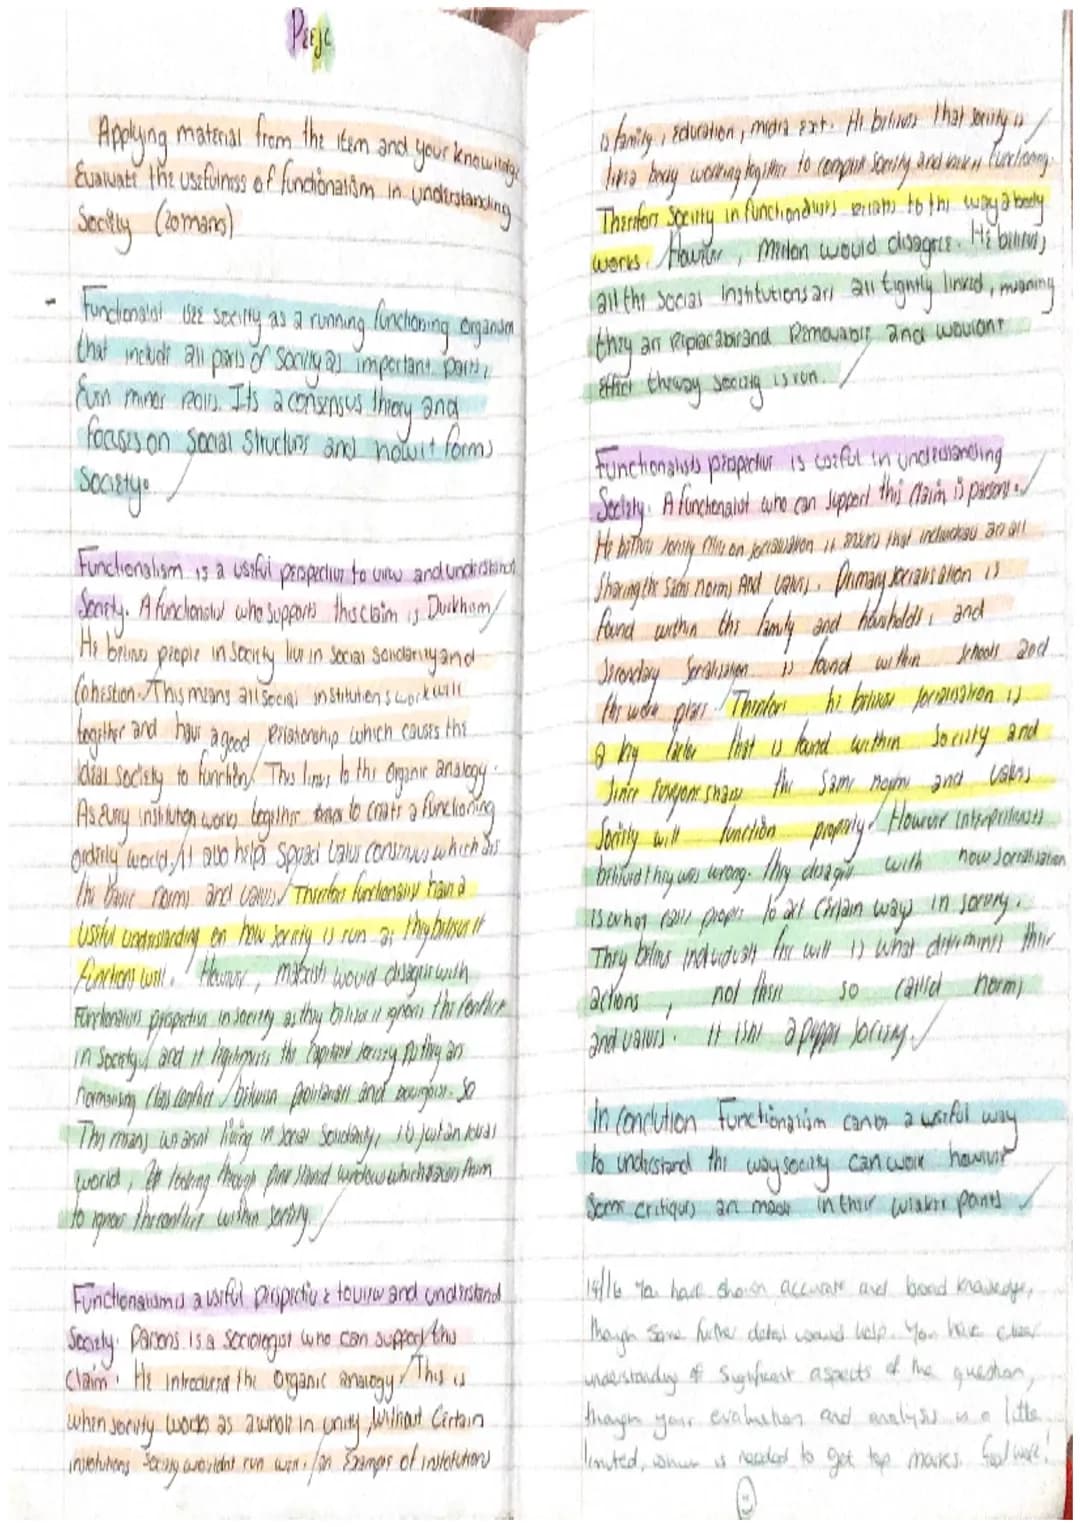 PEEJC
Applying material from the item and your knowledge
Evaluate the usefulness of functionalism in understanding
Society (20 mars)
Functionalist see society as a running functioning organism
that include all parts of society as important parts,
Even minor roles. Its a consensus theory and
focuses on social structures and how it forms
Society.
Functionalism is a useful perspective to view and understand
Society. A functionalist who supports this claim is Durkham
He belives people in society live in social solidarity and
Cohestion. This means all social institutions work well
together and have a good relationship which causes the
ideal society to function. This links to the organic analogy.
As every institution works together to create a functioning
orderly world, it also helps spread value consensus which is
the basic norms and values. Therefore functionalist have a
useful understanding on how society is run as they believe it
functions well. However, marxists would disagree with
Functionalists perspective in society as they believe it ignores the conflict
in society and it legitimises the capitalist society as they are
normalising class conflict between proletariat and bourgeoisie. So
This means we arent living in social solidarity, its just an ideal
world, looking through window which them
to ignore the conflict within society.
Functionalism is a useful perspective to view and understand
Society. Parsons is a sociologist who can support this
claim. He introduced the organic analogy. This is
when society works as a whole in unity, without certain
institutions society wouldnt run well. an Example of institutions
is family, education, media ext. He belives that society is
like a body working together to society and make it functioning.
Therefore society in functionalists relates to the way a body
works. However, Merton would disagree. He belives
all the social institutions are all tightly linked, meaning
they are replaceable and Removable and wouldnt
effect the way society is run.
Functionalists perspective is useful in understanding
Society. A functionalist who can support this claim is parsons.
He belives society rely on socialisation it means that individuals are all
sharing the same norms and values. Primary socialisation is
found within the family and households, and
Secondary socialisation is found within schools and
the work place. Therefore he belives socialisation is
a key factor that is found within society and
since everyone share the same norms and values
Society will function properly. However interpretivists
behived they was wrong. They disagree with how socialisation
is what people to act certain ways in society.
They belives individuals free will is what determines their
actions, not these so called norms
and values. It isnt a puppet society.
In conclution Functionalism can be a useful way
to understand the way society can work however
Some critiques are made in their weaker points
14/16 You have shown accurate and broad knowledge,
though some further detail would help. You have clear
understanding of significant aspects of the question,
though your evaluation and analysis is a little
limited, which is needed to get top marks. Good work!